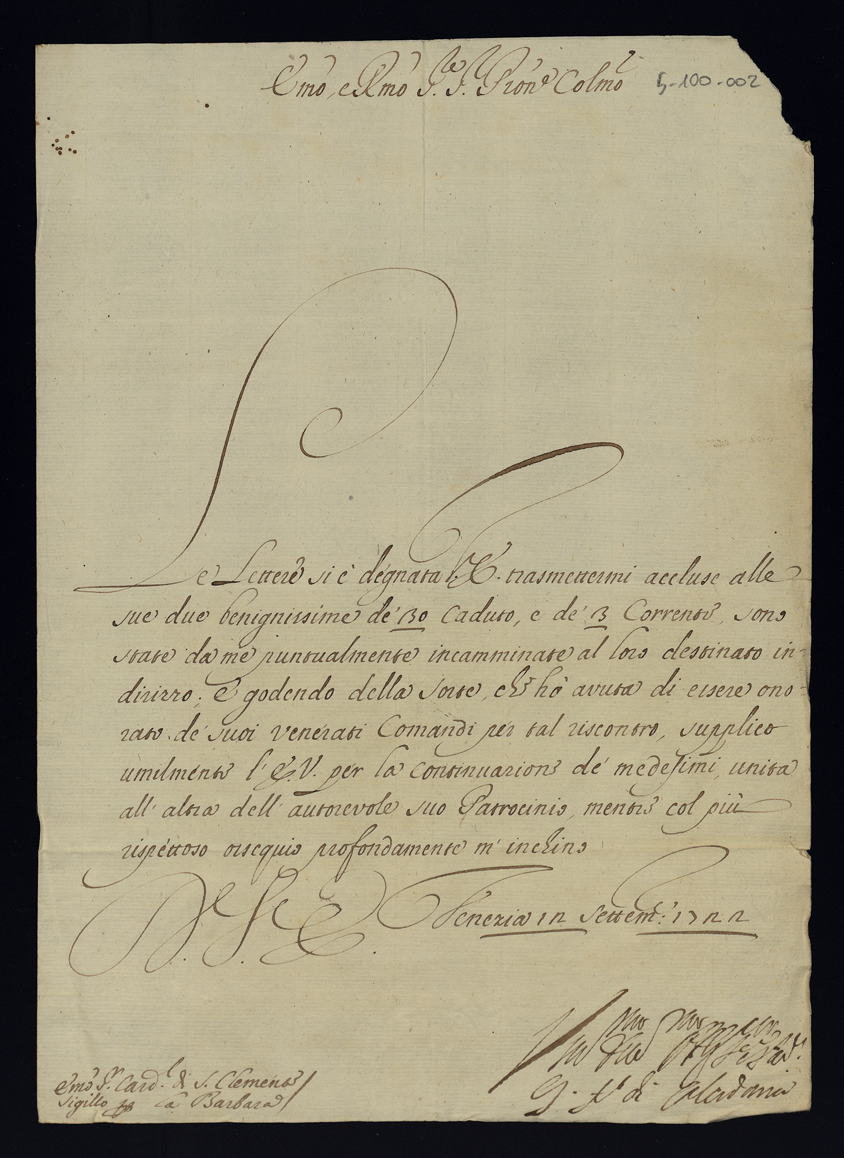 Emo, e Rmo Sre. S. Pron Colmo
5-100-002
Le Lettere si è degnata V.E. trasmettermi accluse alle
sue due benignissime de' 30 caduto, e de' 3 Corrente, sono
state da me puntualmente incamminate al loro destinato in-
dirizzo; e godendo della sorte, che hò avuta di essere ono-
rato de' suoi venerati Comandi per tal riscontro, supplico
umilmente l'E.V. per la continuazione de' medesimi, unita
all'altra dell'autorevole suo Patrocinio, mentre col più
rispettoso ossequio profondamente m'inchino
Venezia 12 Settem: 1722
Emo Sr. Card.l di S. Clemente
Sigillo la Barbara